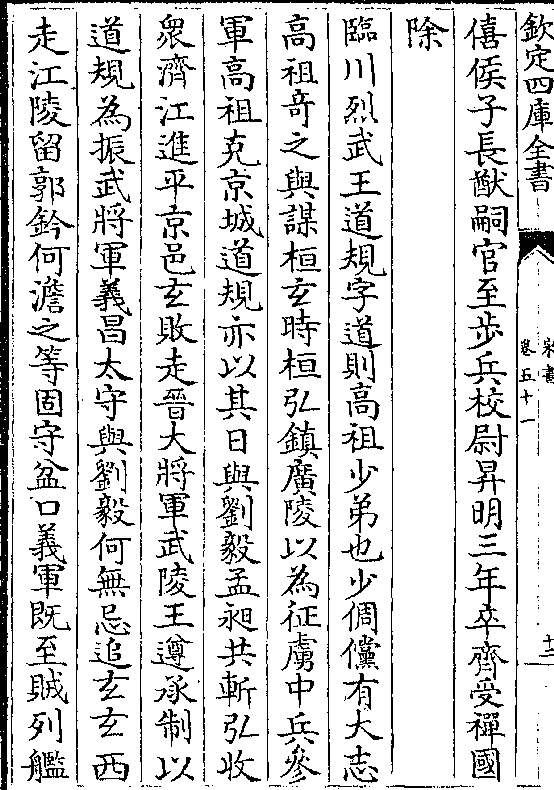 欽定四庫全書
宋書
卷五十一
十二
僖侯子長猷嗣官至步兵校尉昇明三年卒齊受禪國
除
臨川烈武王道規字道則高祖少弟也少倜儻有大志
高祖奇之與謀桓玄時桓弘鎮廣陵以為征虜中兵參
軍高祖克京城道規亦以其日與劉毅孟昶共斬弘收
衆濟江進平京邑玄敗走晉大將軍武陵王遵承制以
道規為振武將軍義昌太守與劉毅何無忌追玄玄西
走江陵留郭銓何澹之等固守盆口義軍既至賊列艦